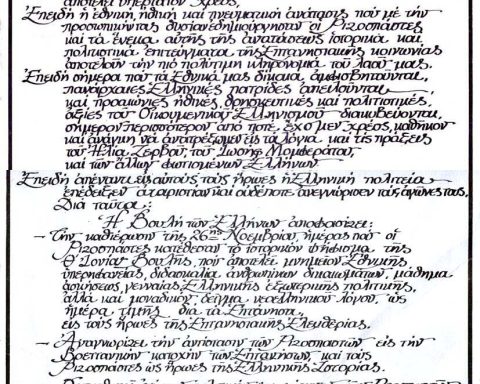 ἀποτελεῖ ὑπέρτατον χρέος,
Ἐπειδή ἡ ἐθνική, ἠθική καί πνευματική ἀνάτασις πού μέ τήν
προσωπικήν τους θυσίαν ἐδημιούργησαν οἱ Ριζοσπάστες
καί τά ἕνεκα αὐτῆς τῆς ἀνατάσεως ἱστορικά καί
πολιτισμικά ἐπιτεύγματα τῆς Ἑπτανησιακῆς κοινωνίας
ἀποτελοῦν τήν πιό πολύτιμη κληρονομιά τοῦ λαοῦ μας.
Ἐπειδή σήμερα πού τά Ἐθνικά μας δίκαια ἀμφισβητοῦνται,
πανάρχαιες Ἑλληνικές πατρίδες ἀπειλοῦνται
καί προαιώνιες ἠθικές, θρησκευτικές καί πολιτιστικές
ἀξίες τοῦ Οἰκουμενικοῦ Ἑλληνισμοῦ διακυβεύονται,
σήμερον περισσότερον ἀπό ποτέ ἔχομεν χρέος, καθῆκον
καί ἀνάγκη νά ἀνατρέξωμεν εἰς τά λόγια καί τίς πράξεις
τοῦ Ἠλία Ζερβοῦ, τοῦ Ἰωσήφ Μομφεράτου,
καί τῶν ἄλλων φωτισμένων Ἑλλήνων.
Ἐπειδή ἀπέναντι εἰς αὐτούς τούς ἥρωες ἡ Ἑλληνική πολιτεία
ἐπέδειξεν ἀχαριστίαν καί οὐδέποτε ἀνεγνώρισεν τούς ἀγῶνες τους.
Διά ταῦτα:
Ἡ Βουλή τῶν Ἑλλήνων ἀποφασίζει:
– Τήν καθιέρωσιν τῆς 26ης Νοεμβρίου, ἡμέρας πού οἱ
Ριζοσπάστες κατέθεσαν τό ἱστορικόν ψήφισμα τῆς
Θ' Ἰονίου Βουλῆς, πού ἀποτελεῖ μνημεῖον Ἐθνικῆς
ὑπερηφανείας, διδασκαλία ἀνθρωπίνων δικαιωμάτων, μάθημα
ἀσκήσεως γενναίας Ἑλληνικῆς ἐξωτερικῆς πολιτικῆς,
ἀλλά καί μοναδικόν δεῖγμα νεοελληνικοῦ λόγου, ὡς
ἡμέρα τιμῆς διά τά Ἑπτάνησα,
εἰς τούς ἥρωες τῆς Ἑπτανησιακῆς Ἐλευθερίας.
– Ἀναγνωρίζει τήν ἀντίστασιν τῶν Ριζοσπαστῶν εἰς τήν
Βρεττανικήν κατοχήν τῶν Ἑπτανήσων, καί τούς
Ριζοσπάστες ὡς ἥρωες τῆς Ἑλληνικῆς Ἱστορίας.